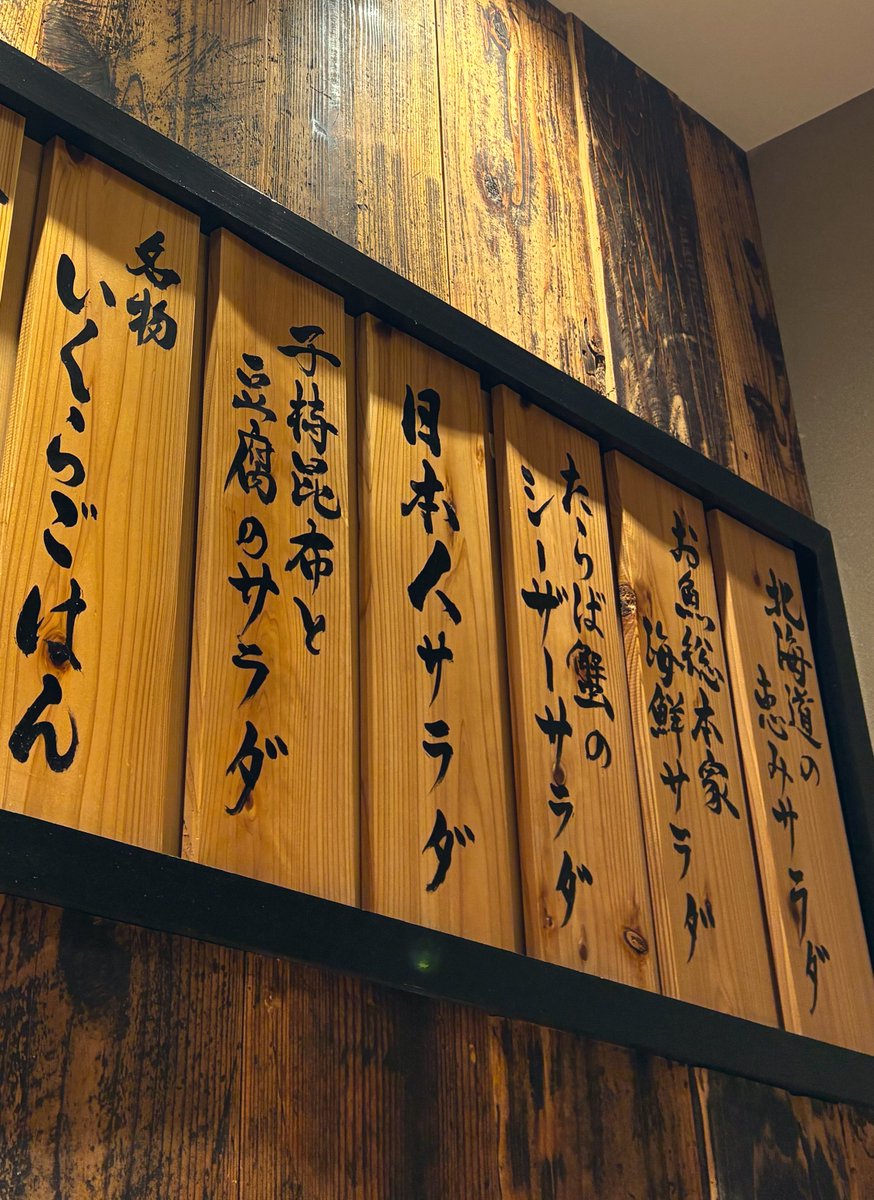 北海道の
恵みサラダ
お魚総本家
海鮮サラダ
たらば蟹の
シーザーサラダ
日本人サラダ
子持昆布と
豆腐のサラダ
名物
いくらごはん